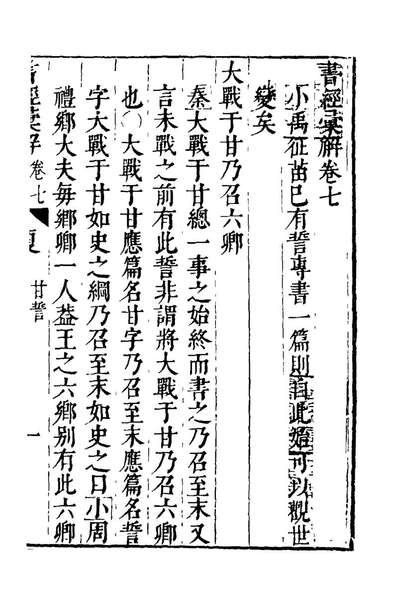 書經彙解卷七
小禹征苗已有誓專書一篇則自此始可以觀世
變矣
大戰于甘乃召六卿
秦大戰于甘總一事之始終而書之乃召至末又
言未戰之前有此誓非謂將大戰于甘乃召六卿
也○大戰于甘應篇名甘字乃召至末應篇名誓
字大戰于甘如史之綱乃召至末如史之目小周
禮鄉大夫每鄉卿一人葢王之六鄉别有此六卿
書經彙解 卷七 夏 甘誓 一